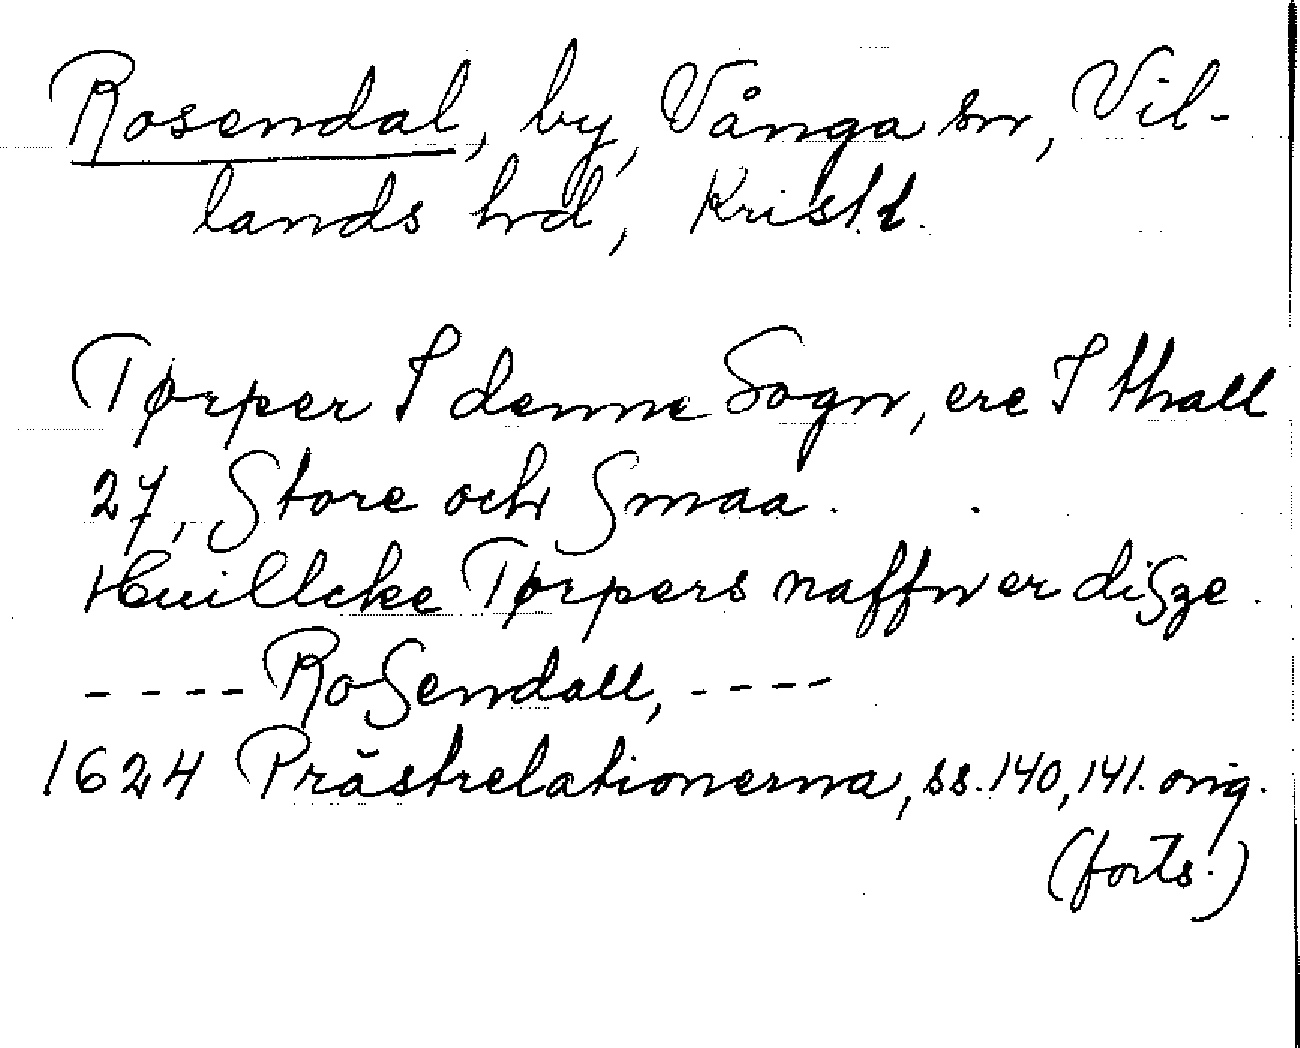 Rosendal, by, Vånga sn, Vil-
lands hd, Krist. l.
Tørper I denne Sogn, ere I thall
27, Store och Smaa.
Huillcke Tørpers naffn er disze
---- Rosendall, ----
1624 Prästrelationerna, ss. 140, 141. orig.
(forts.)